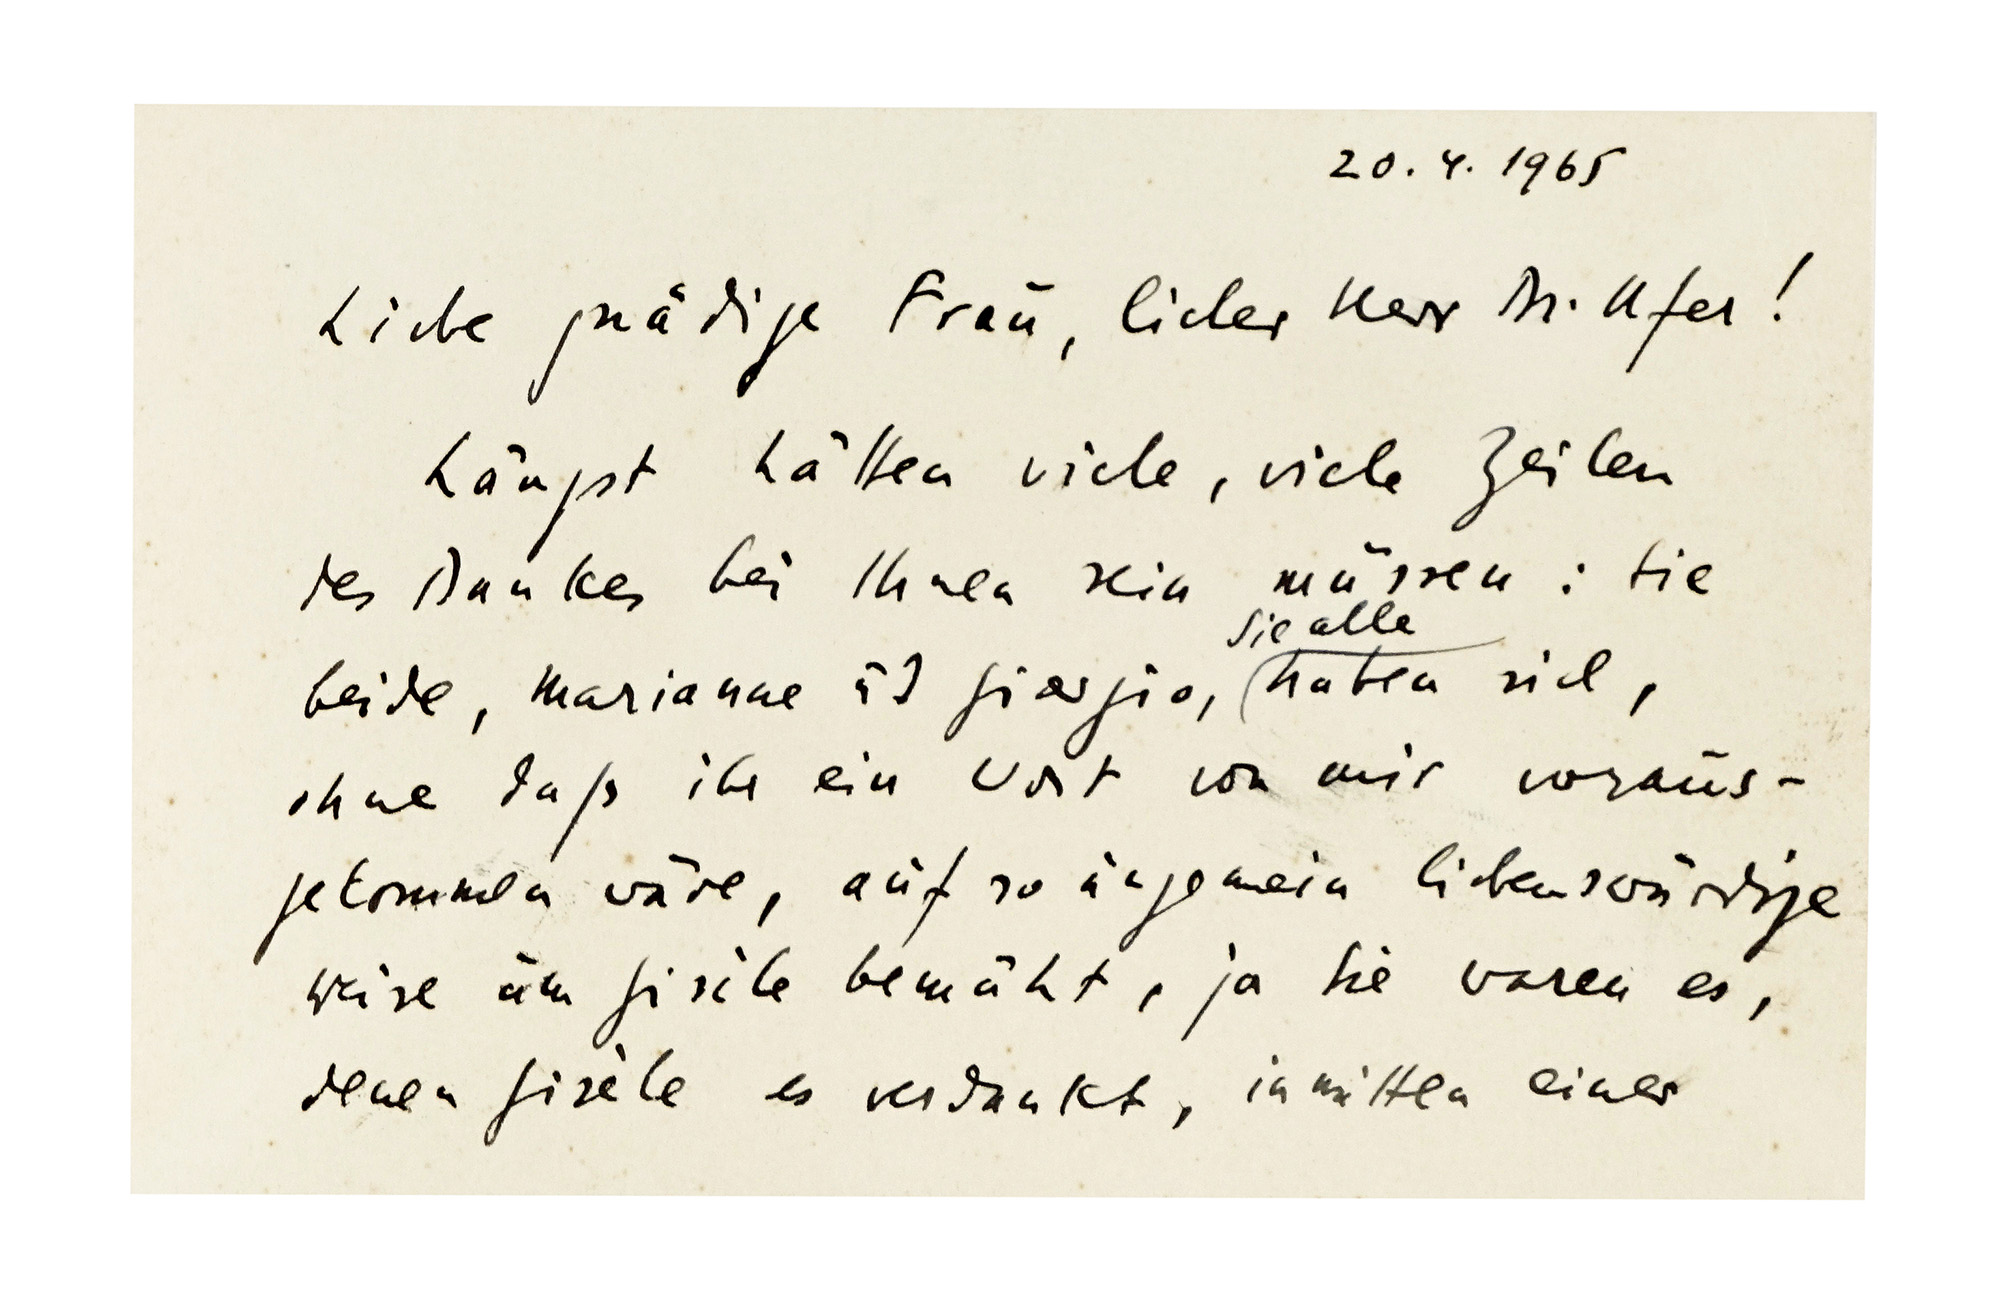 20.4.1965
Liebe gnädige Frau, lieber Herr Dr. Ufer!
Längst hätten viele, viele Zeilen
des Dankes bei Ihnen sein müssen: Sie
Sie alle
beide, Marianne und Giorgio, haben sich,
ohne daß ihr ein Wort von mir voraus-
gekommen wäre, auf so ungemein liebenswürdige
Weise um Gisèle bemüht, ja Sie waren es,
denen Gisèle es verdankt, inmitten einer